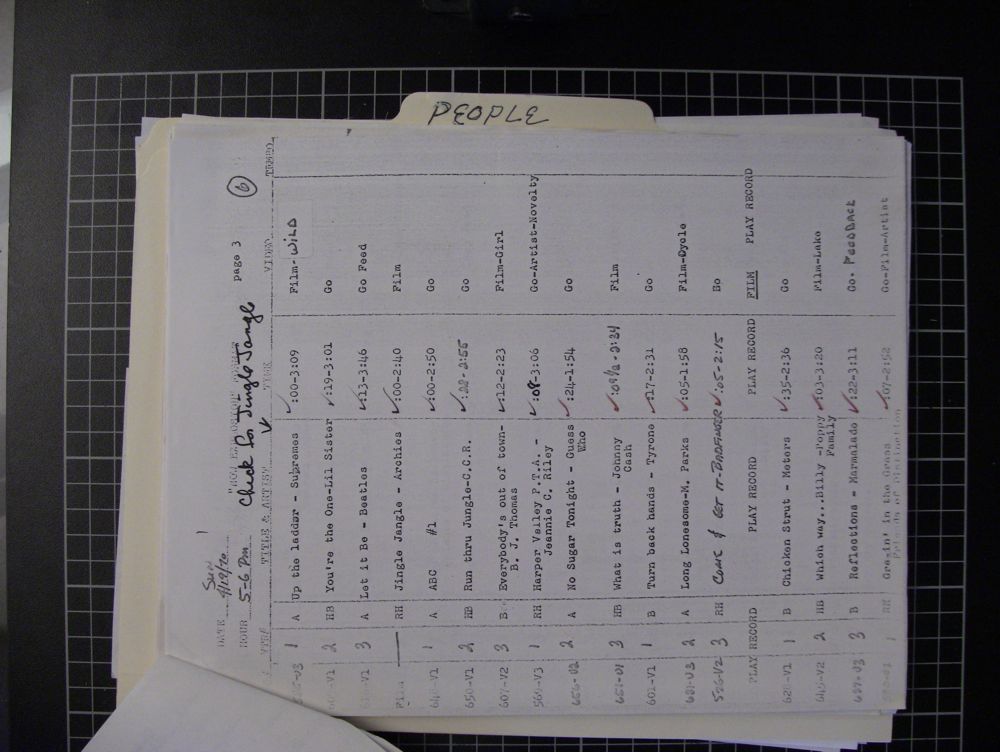 PEOPLE
page 3 6
DATE Sun 4/19/70
HOUR 5-6 Pm Check for Jingle Jangle
TITLE & ARTIST TIME VIDEO TEMPO
1 A Up the ladder - Supremes :00-3:09 Film-WILD
2 HB You're the One-Lil Sister :19-3:01 Go
3 A Let it Be - Beatles :13-3:46 Go Feed
Film RH Jingle Jangle - Archies :00-2:40 Film
1 A ABC #1 :00-2:50 Go
650-V1 2 HB Run thru Jungle-C.C.R. :22-2:55 Go
607-V2 3 B Everybody's out of town- :12-2:23 Film-Girl
B. J. Thomas
569-V3 1 RH Harper Valley P.T.A. - :08-3:06 Go-Artist-Novelty
Jeannie C. Riley
656-V2 2 A No Sugar Tonight - Guess :24-1:54 Go
Who
3 HB What is truth - Johnny :09½-2:34 Film
Cash
601-V1 1 B Turn back hands - Tyrone :17-2:31 Go
2 A Long Lonesome-M. Parks :05-1:58 Film-Cycle
526-V2 3 RH COME & GET IT-BADFINGER :05-2:15 Bp
PLAY RECORD PLAY RECORD PLAY RECORD FILM PLAY RECORD
628-V1 1 B Chicken Strut - Meters :35-2:36 Go
2 HB Which way...Billy -Poppy :03-3:20 Film-Lake
Family
3 B Reflections - Marmalade :22-3:11 Go. FEEDBACK
1 RH Grazin' in the Grass :07-2:52 Go-Film-Artist
Friends of Distinction